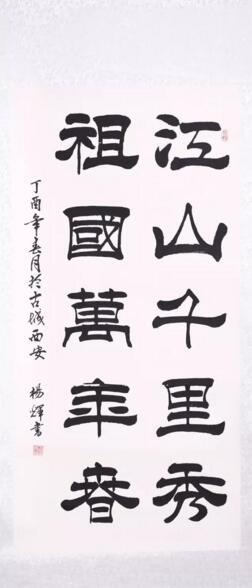 江山千里秀
祖國萬年春
丁酉年春月於古城西安 楊輝書